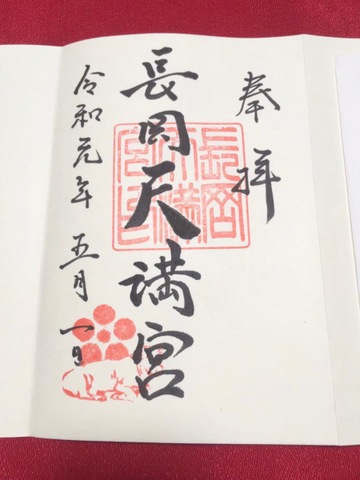 奉拝
長岡天満宮
令和元年五月一日
長岡天満宮印